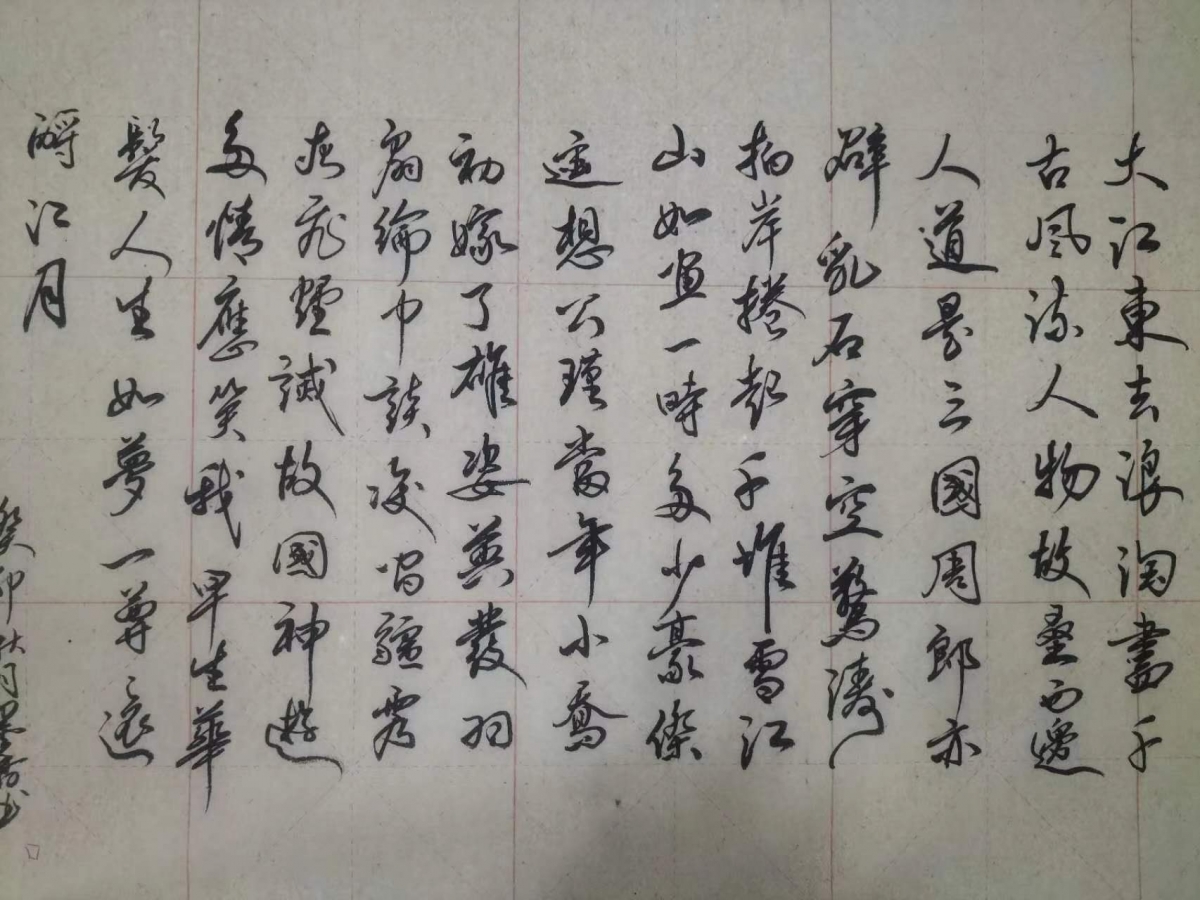 大江東去浪淘盡千
古風流人物故壘西邊
人道是三國周郎赤
壁亂石穿空驚濤
拍岸捲起千堆雪江
山如畫一時多少豪傑
遙想公瑾當年小喬
初嫁了雄姿英發羽
扇綸巾談笑間虜
灰飛煙滅故國神遊
多情應笑我早生華
髮人生如夢一尊還
酹江月
癸卯秋月書